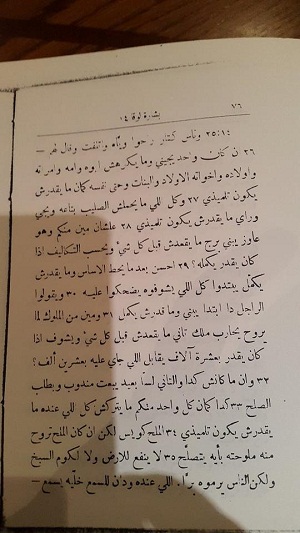 ٧٦ بشارة لوقا ١٤
٢٥:١٤ وناس كتار راحوا وياه والتفت وقال لهم —
٢٦ إن كان واحد يجيني وما يكرهش ابوه وامه وامراته
واولاده واخواته الاولاد والبنات وحتى نفسه كمان ما يقدرش
يكون تلميذي ٢٧ وكل اللي ما يحملش الصليب بتاعه ويجي
وراي ما يقدرش يكون تلميذي ٢٨ علشان مين منكم وهو
عاوز يبني برج ما يقعدش قبل كل شيء ويحسب التكاليف اذا
كان يقدر يكمله؟ ٢٩ احسن بعد ما يحط الاساس وما يقدرش
يكمل يبتدوا كل اللي يشوفوه يضحكوا عليه ٣٠ ويقولوا
الراجل دا ابتدا يبني وما قدرش يكمل ٣١ ومين من الملوك لما
يروح يحارب ملك تاني ما يقعدش قبل كل شيء ويشوف اذا
كان يقدر بعشرة آلاف يقابل اللي جاي عليه بعشرين ألف؟
٣٢ وان ما كانش كدا والتاني لسا بعيد يبعت مندوب ويطلب
الصلح ٣٣ كدا كمان كل واحد منكم ما يتركش كل اللي عنده ما
يقدرش يكون تلميذي ٣٤ الملح كويس لكن ان كان الملح تروح
منه ملوحته بأيه يتصلّح ٣٥ لا ينفع للارض ولا لكوم السبخ
ولكن الناس يرموه برّا. اللي عنده ودان للسمع خليه يسمع —